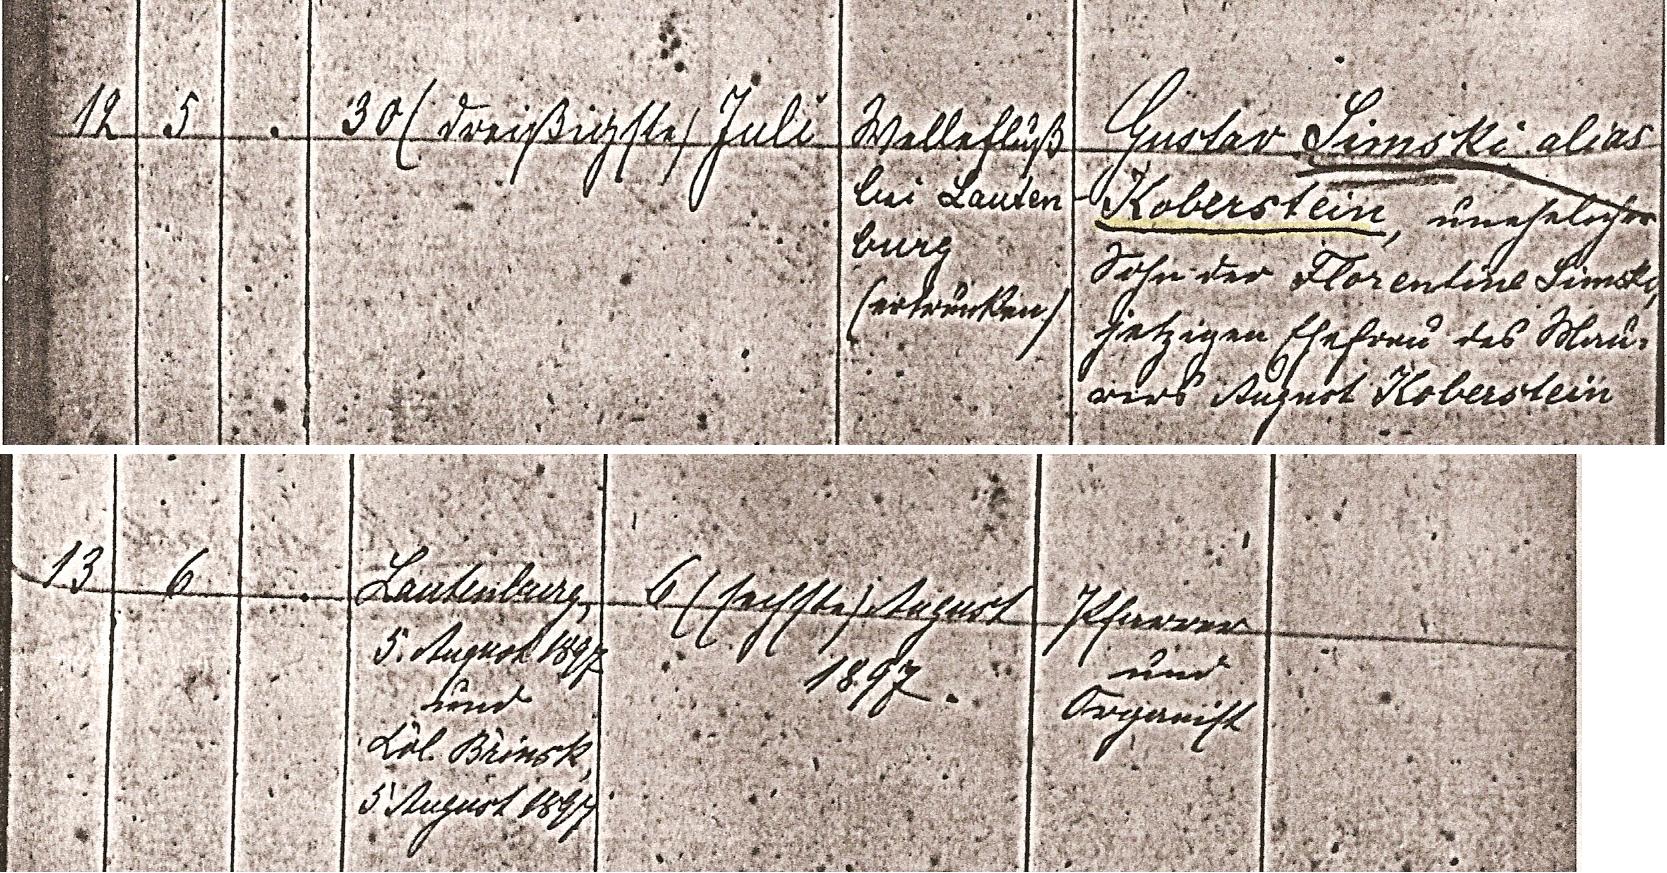 12 5 . 30 (dreißigste) Juli
Wellefluß
bei Lauten
burg
(ertrunken)
Gustav Simski alias
Koberstein, unehelicher
Sohn der Florentine Simski,
jetzigen Ehefrau des Mau-
rers August Koberstein
13 6 .
Lautenburg,
5. August 1897
und
Kól. Brinsk,
5 August 1897
6 (sechste) August
1897.
Pfarrer
und
Organist